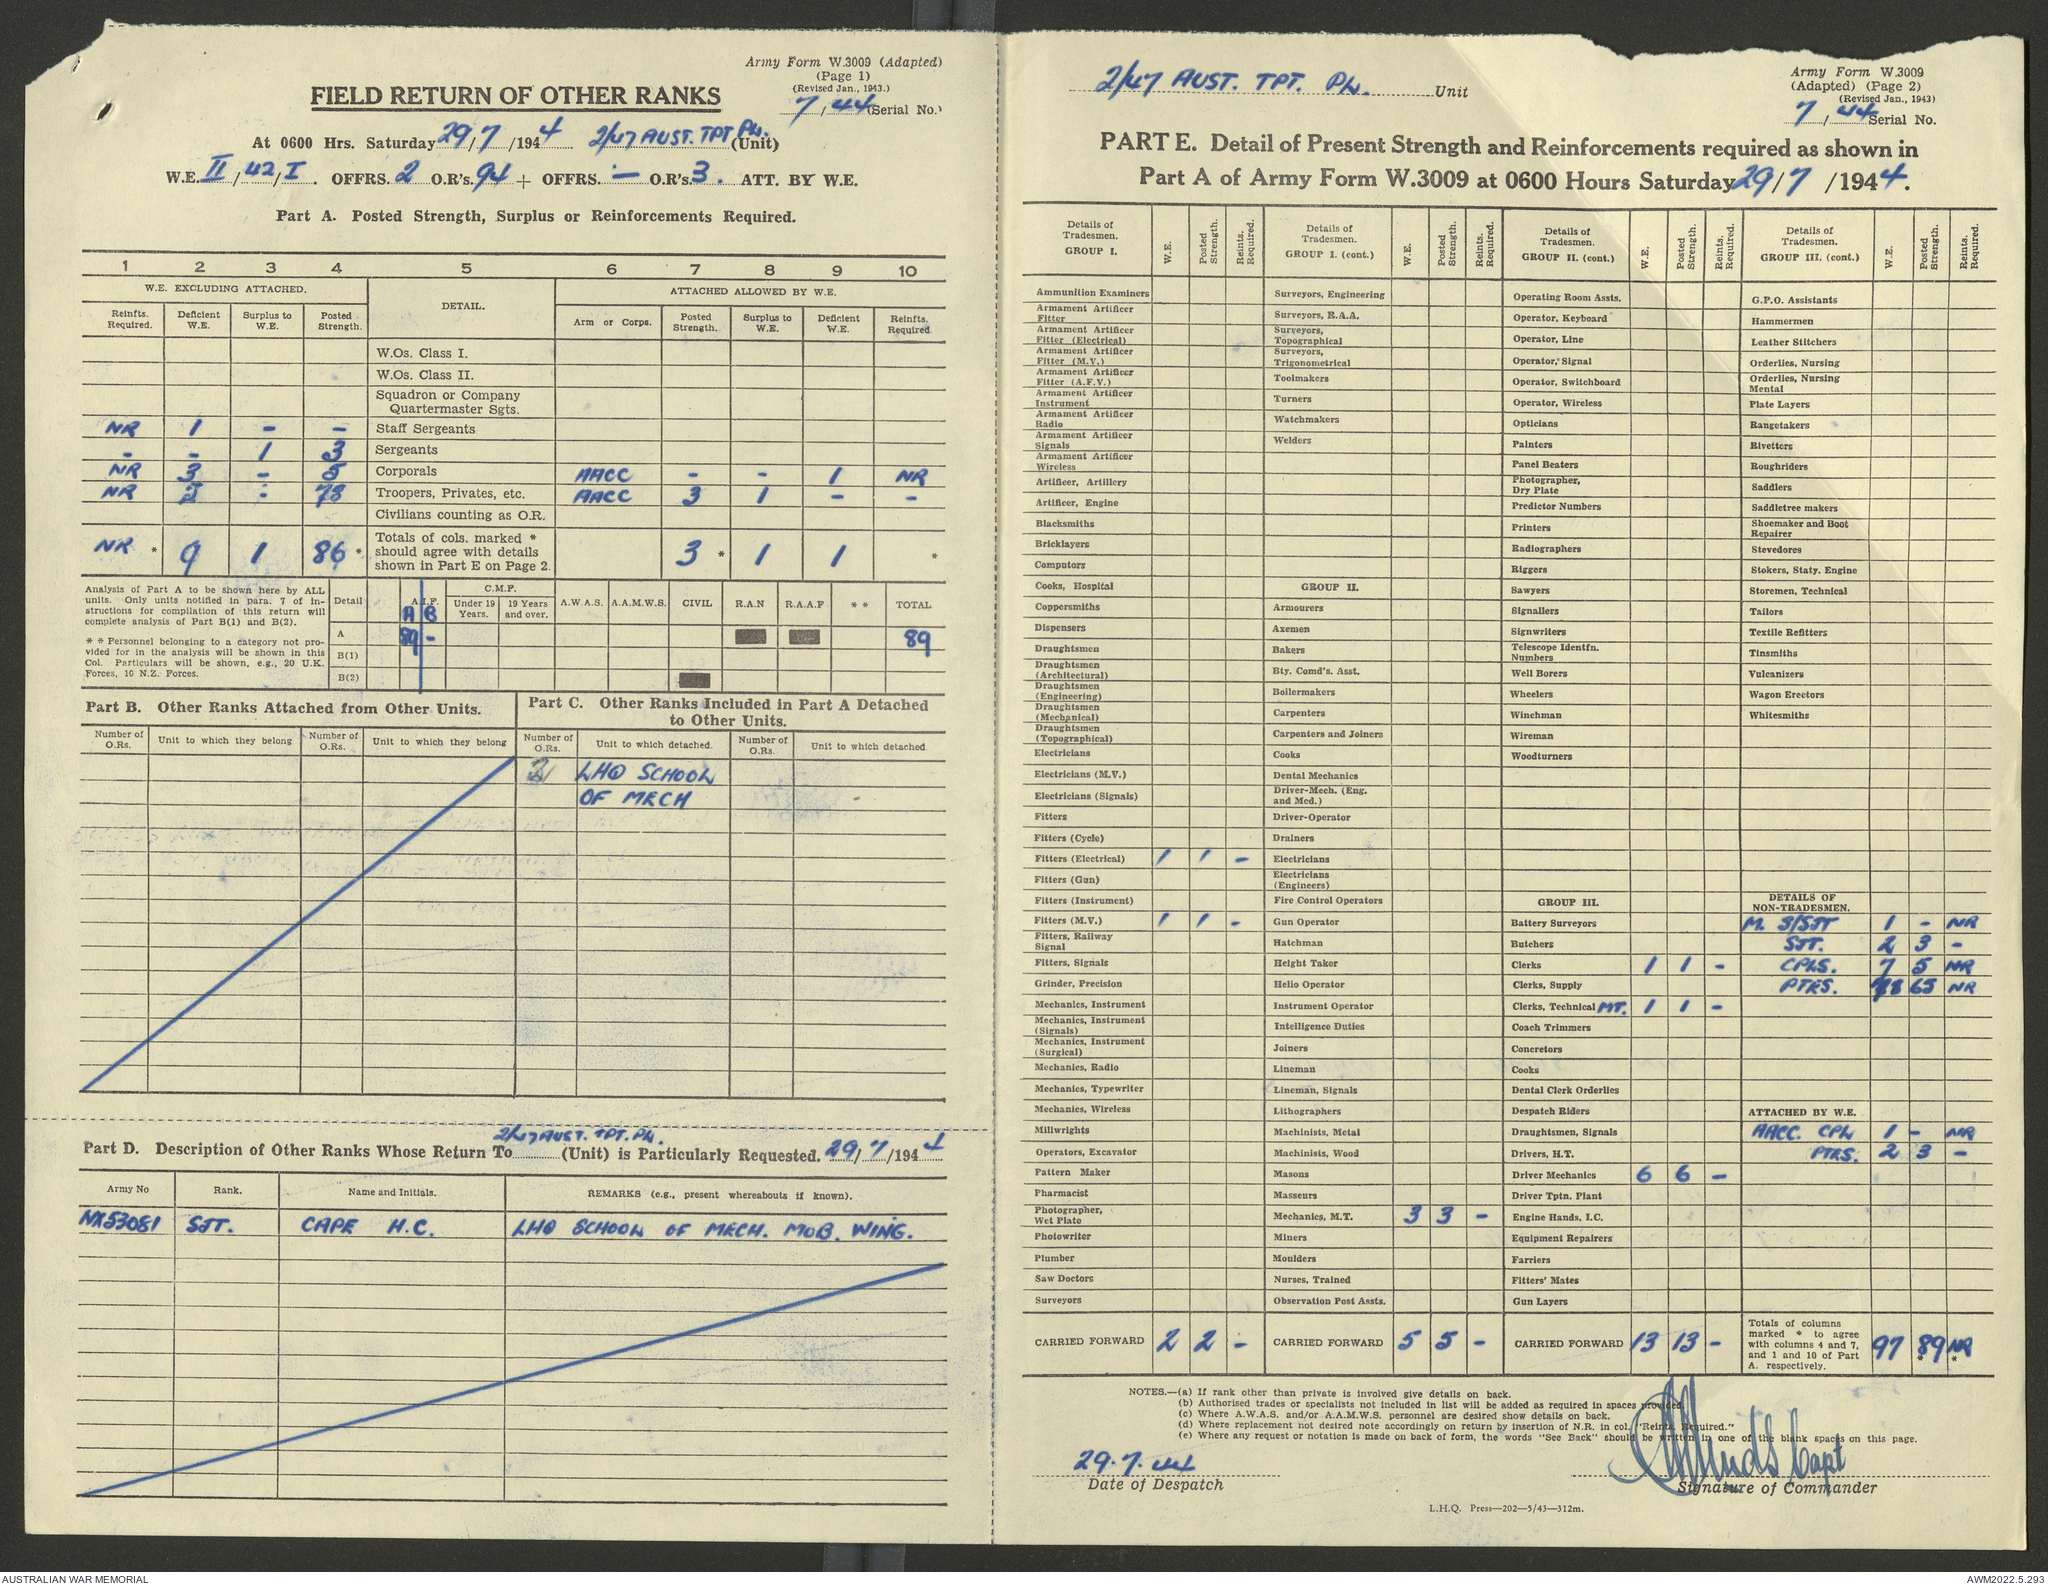 Army Form W.3009 (Adapted)
(Page 1)
(Revised Jan., 1943.)
7/44 (Serial No.)
FIELD RETURN OF OTHER RANKS
At 0600 Hrs. Saturday 29/7/1944 2/47 AUST. TPT PL. (Unit)
W.E. II/42/I. OFFRS. 2 O.R's. 94 + OFFRS. — O.R's. 3. ATT. BY W.E.
Part A. Posted Strength, Surplus or Reinforcements Required.
1 2 3 4 5 6 7 8 9 10
W.E. EXCLUDING ATTACHED. DETAIL. ATTACHED ALLOWED BY W.E.
Reinfts. Required. Deficient W.E. Surplus to W.E. Posted Strength. Arm or Corps. Posted Strength. Surplus to W.E. Deficient W.E. Reinfts. Required
W.Os. Class I.
W.Os. Class II.
Squadron or Company
Quartermaster Sgts.
NR 1 - - Staff Sergeants
- - 1 3 Sergeants
NR 3 - 5 Corporals AACC - - 1 NR
NR - 78 Troopers, Privates, etc. AACC 3 1 - -
Civilians counting as O.R.
NR * 9 1 86 * Totals of cols. marked * should agree with details shown in Part E on Page 2. 3 * 1 1 *
Analysis of Part A to be shown here by ALL
units. Only units notified in para. 7 of in-
structions for compilation of this return will
complete analysis of Part B(1) and B(2).
* * Personnel belonging to a category not pro-
vided for in the analysis will be shown in this
Col. Particulars will be shown, e.g., 20 U.K.
Forces, 16 N.Z. Forces.
Detail A.I.F. A B C.M.F. Under 19 Years. 19 Years and over. A.W.A.S. A.A.M.W.S. CIVIL R.A.N R.A.A.F * * TOTAL
A 89 - 89
B(1)
B(2)
Part B. Other Ranks Attached from Other Units.
Part C. Other Ranks Included in Part A Detached
to Other Units.
Number of O.Rs. Unit to which they belong Number of O.Rs. Unit to which they belong Number of O.Rs. Unit to which detached. Number of O.Rs. Unit to which detached
LHQ SCHOOL
OF MECH
2/47 AUST. TPT. PL.
Part D. Description of Other Ranks Whose Return To (Unit) is Particularly Requested. 29/7/1944
Army No Rank. Name and Initials. REMARKS (e.g., present whereabouts if known).
NX53081 SJT. CAPE H.C. LHQ SCHOOL OF MECH. MOB. WING.
2/47 AUST. TPT. PL. Unit
Army Form W.3009
(Adapted) (Page 2)
(Revised Jan., 1943)
7/44 Serial No.
PART E. Detail of Present Strength and Reinforcements required as shown in
Part A of Army Form W.3009 at 0600 Hours Saturday 29/7/1944.
Details of Tradesmen. GROUP I. W.E. Posted Strength. Reints. Required.
Ammunition Examiners
Armament Artificer Fitter
Armament Artificer Fitter (Electrical)
Armament Artificer Fitter (M.V.)
Armament Artificer Fitter (A.F.V.)
Armament Artificer Instrument
Armament Artificer Radio
Armament Artificer Signals
Armament Artificer Wireless
Artificer, Artillery
Artificer, Engine
Blacksmiths
Bricklayers
Computors
Cooks, Hospital
Coppersmiths
Dispensers
Draughtsmen
Draughtsmen (Architectural)
Draughtsmen (Engineering)
Draughtsmen (Mechanical)
Draughtsmen (Topographical)
Electricians
Electricians (M.V.)
Electricians (Signals)
Fitters
Fitters (Cycle)
Fitters (Electrical) 1 1 -
Fitters (Gun)
Fitters (Instrument)
Fitters (M.V.) 1 1 -
Fitters, Railway Signal
Fitters, Signals
Grinder, Precision
Mechanics, Instrument
Mechanics, Instrument (Signals)
Mechanics, Instrument (Surgical)
Mechanics, Radio
Mechanics, Typewriter
Mechanics, Wireless
Millwrights
Operators, Excavator
Pattern Maker
Pharmacist
Photographer, Wet Plate
Photowriter
Plumber
Saw Doctors
Surveyors
CARRIED FORWARD 2 2 -
Details of Tradesmen. GROUP I. (cont.) W.E. Posted Strength. Reints. Required.
Surveyors, Engineering
Surveyors, R.A.A.
Surveyors, Topographical
Surveyors, Trigonometrical
Toolmakers
Turners
Watchmakers
Welders
GROUP II.
Armourers
Axemen
Bakers
Bty. Comd's. Asst.
Boilermakers
Carpenters
Carpenters and Joiners
Cooks
Dental Mechanics
Driver-Mech. (Eng. and Med.)
Driver-Operator
Drainers
Electricians
Electricians (Engineers)
Fire Control Operators
Gun Operator
Hatchman
Height Taker
Helio Operator
Instrument Operator
Intelligence Duties
Joiners
Lineman
Lineman, Signals
Lithographers
Machinists, Metal
Machinists, Wood
Masons
Masseurs
Mechanics, M.T. 3 3 -
Miners
Moulders
Nurses, Trained
Observation Post Assts.
CARRIED FORWARD 5 5 -
Details of Tradesmen. GROUP II. (cont.) W.E. Posted Strength. Reints. Required.
Operating Room Assts.
Operator, Keyboard
Operator, Line
Operator, Signal
Operator, Switchboard
Operator, Wireless
Opticians
Painters
Panel Beaters
Photographer, Dry Plate
Predictor Numbers
Printers
Radiographers
Riggers
Sawyers
Signallers
Signwriters
Telescope Identfn. Numbers
Well Borers
Wheelers
Winchman
Wireman
Woodturners
GROUP III.
Battery Surveyors
Butchers
Clerks 1 1 -
Clerks, Supply
Clerks, Technical MT. 1 1 -
Coach Trimmers
Concretors
Cooks
Dental Clerk Orderlies
Despatch Riders
Draughtsmen, Signals
Drivers, H.T.
Driver Mechanics 6 6 -
Driver Tptn. Plant
Engine Hands, I.C.
Equipment Repairers
Farriers
Fitters' Mates
Gun Layers
CARRIED FORWARD 13 13 -
Details of Tradesmen. GROUP III. (cont.) W.E. Posted Strength. Reints. Required.
G.P.O. Assistants
Hammermen
Leather Stitchers
Orderlies, Nursing
Orderlies, Nursing Mental
Plate Layers
Rangetakers
Rivetters
Roughriders
Saddlers
Saddletree makers
Shoemaker and Boot Repairer
Stevedores
Stokers, Staty. Engine
Storemen, Technical
Tailors
Textile Refitters
Tinsmiths
Vulcanizers
Wagon Erectors
Whitesmiths
DETAILS OF NON-TRADESMEN.
M. S/SJT 1 - NR
SJT. 2 3 -
CPLS. 7 5 NR
PTES. 65 NR
ATTACHED BY W.E.
AACC. CPL 1 - NR
PTES. 2 3 -
Totals of columns marked * to agree with columns 4 and 7, and 1 and 10 of Part A. respectively. 97 89 * NR *
NOTES.—(a) If rank other than private is involved give details on back.
(b) Authorised trades or specialists not included in list will be added as required in spaces provided.
(c) Where A.W.A.S. and/or A.A.M.W.S. personnel are desired show details on back.
(d) Where replacement not desired note accordingly on return by insertion of N.R. in col. "Reints. Required."
(e) Where any request or notation is made on back of form, the words "See Back" should be written in one of the blank spaces on this page.
29.7.44
Date of Despatch
Capt
Signature of Commander
L.H.Q. Press—202—5/43—312m.
AUSTRALIAN WAR MEMORIAL
AWM2022.5.293